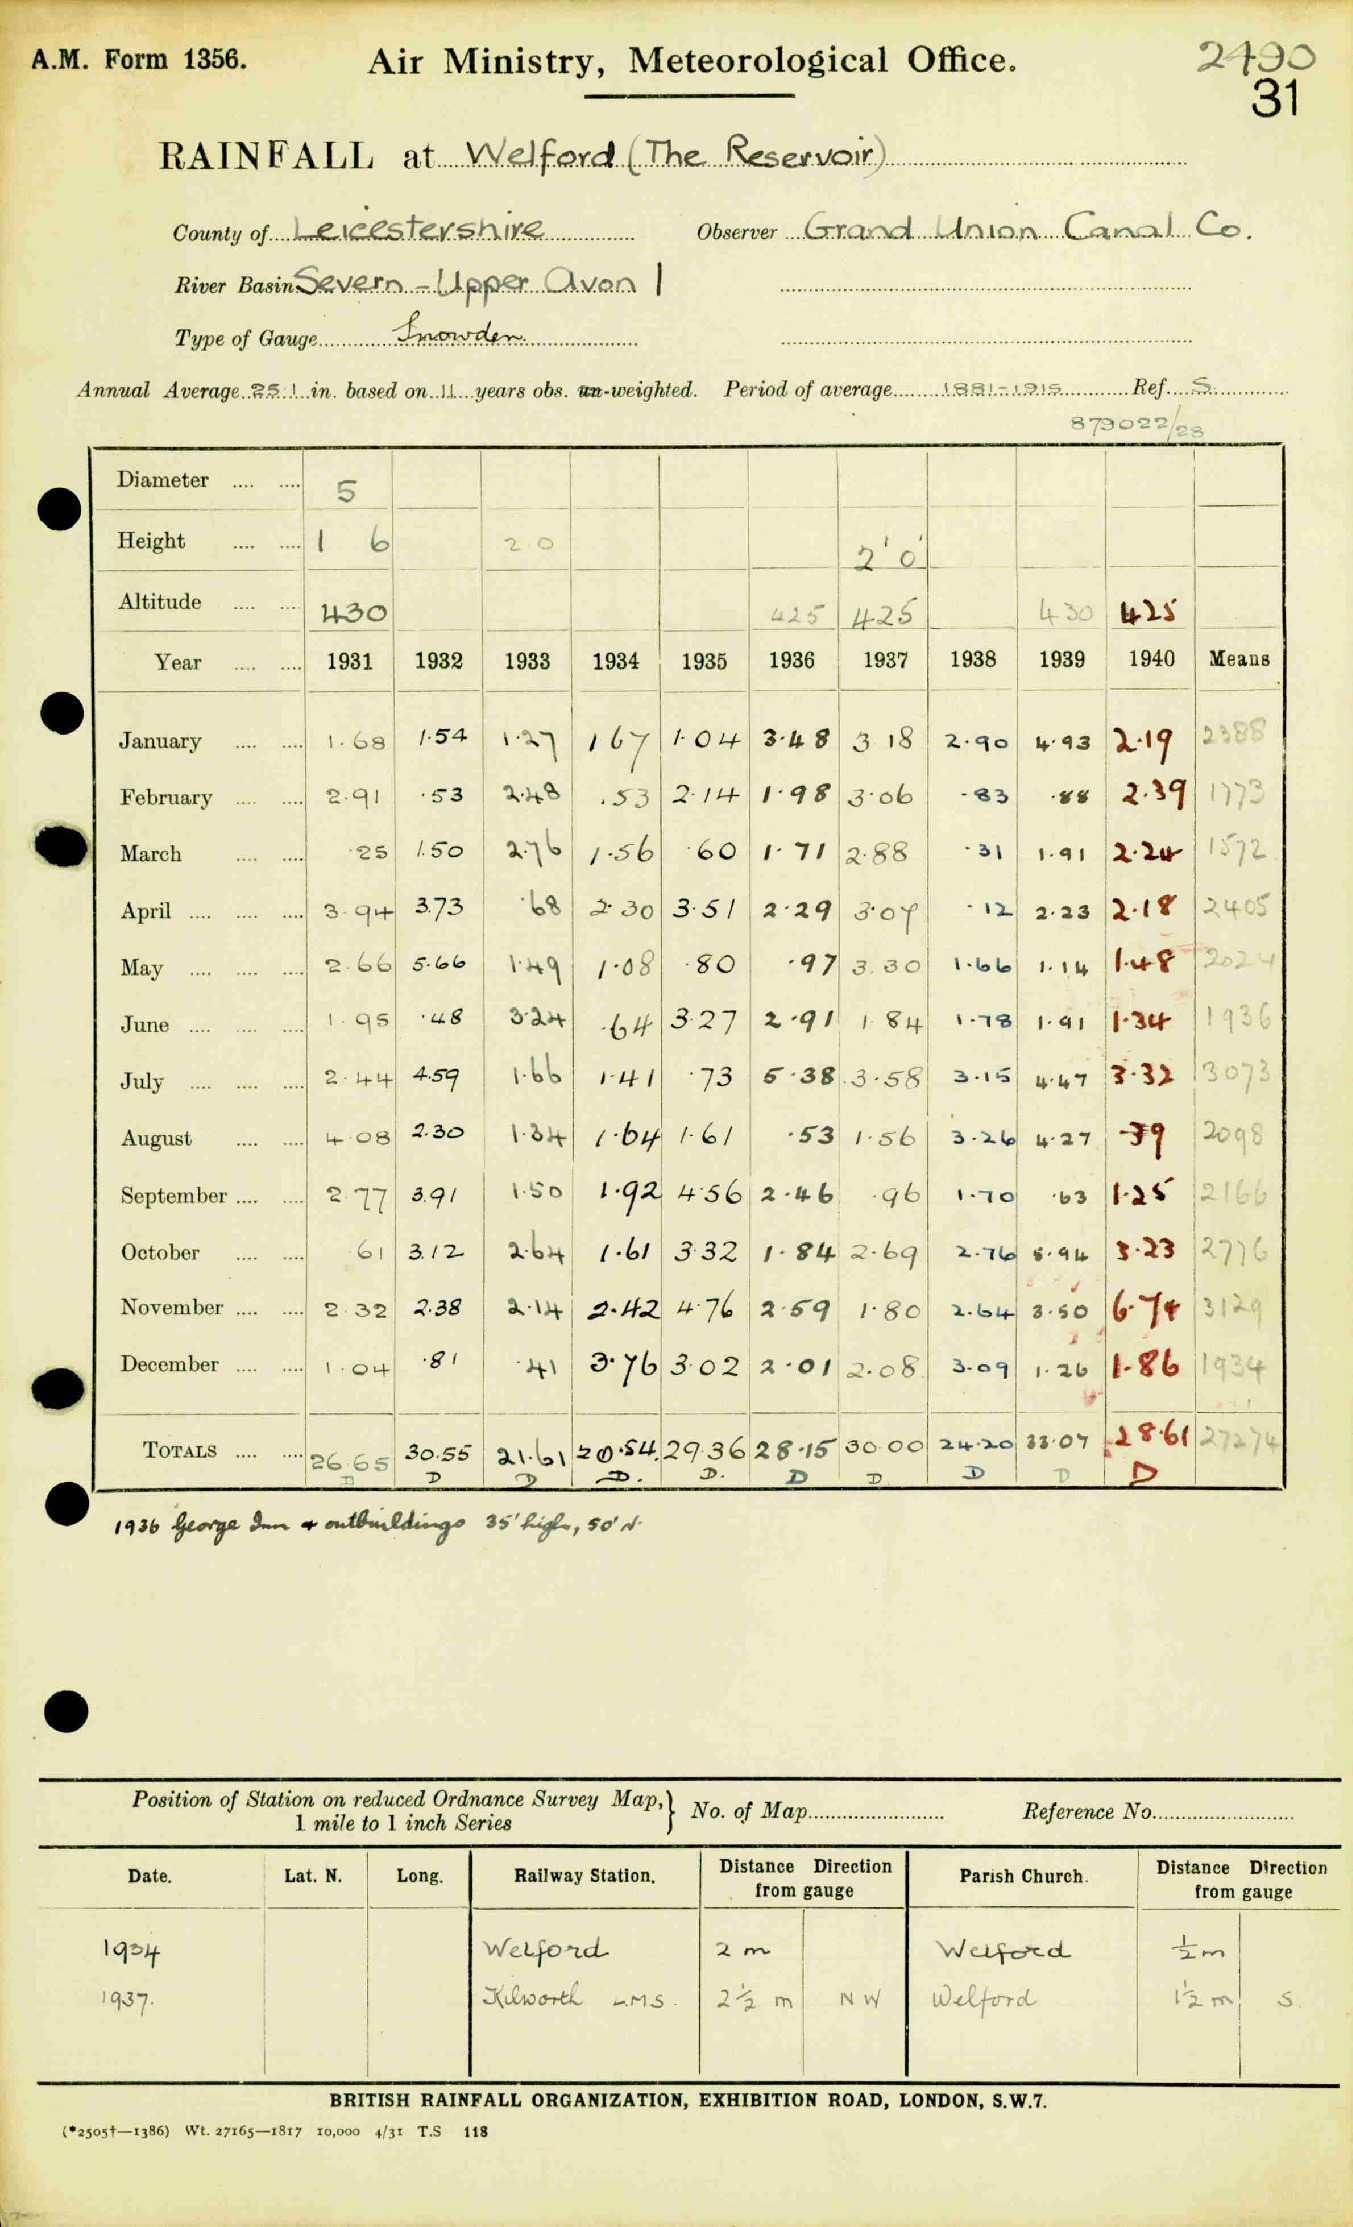 A.M. Form 1356. Air Ministry, Meteorological Office. 2490
31
RAINFALL at Welford (The Reservoir)
County of Leicestershire Observer Grand Union Canal Co.
River Basin Severn - Upper Avon 1
Type of Gauge Snowden
Annual Average 25.1 in. based on 11 years obs. un-weighted. Period of average 1881-1915 Ref. S.
879022/28
Diameter 5
Height 1 6 2 0 2' 0"
Altitude 430 425 425 430 425
Year 1931 1932 1933 1934 1935 1936 1937 1938 1939 1940 Means
January 1.68 1.54 1.27 1 67 1.04 3.48 3 18 2.90 4.93 2.19 2388
February 2.91 .53 2.48 .53 2.14 1.98 3.06 .83 .88 2.39 1773
March .25 1.50 2.76 1.56 .60 1.71 2.88 .31 1.91 2.24 1572
April 3.94 3.73 .68 2.30 3.51 2.29 3.07 .12 2.23 2.18 2405
May 2.66 5.66 1.49 1.08 .80 .97 3.30 1.66 1.14 1.48 2024
June 1.95 .48 3.24 .64 3.27 2.91 1.84 1.78 1.91 1.34 1936
July 2.44 4.59 1.66 1.41 .73 5.38 3.58 3.15 4.47 3.32 3073
August 4.08 2.30 1.34 1.64 1.61 .53 1.56 3.26 4.27 .39 2098
September 2.77 3.91 1.50 1.92 4.56 2.46 .96 1.70 .63 1.25 2166
October .61 3.12 2.64 1.61 3.32 1.84 2.69 2.76 5.94 3.23 2776
November 2.32 2.38 2.14 2.42 4.76 2.59 1.80 2.64 3.50 6.74 3129
December 1.04 .81 .41 3.76 3.02 2.01 2.08 3.09 1.26 1.86 1934
TOTALS 26.65 30.55 21.61 20.54 29.36 28.15 30.00 24.20 33.07 28.61 27274
D D D D. D. D D D D D
1936 George Inn & outbuildings 35' high, 50' N.
Position of Station on reduced Ordnance Survey Map, } No. of Map Reference No.
1 mile to 1 inch Series
Date. Lat. N. Long. Railway Station. Distance Direction from gauge Parish Church. Distance Direction from gauge
1934 Welford 2 m Welford ½ m
1937. Kilworth L.M.S. 2½ m N W Welford 1½ m S.
BRITISH RAINFALL ORGANIZATION, EXHIBITION ROAD, LONDON, S.W.7.
(*2505†—1386) Wt. 27165—1817 10,000 4/31 T.S 118